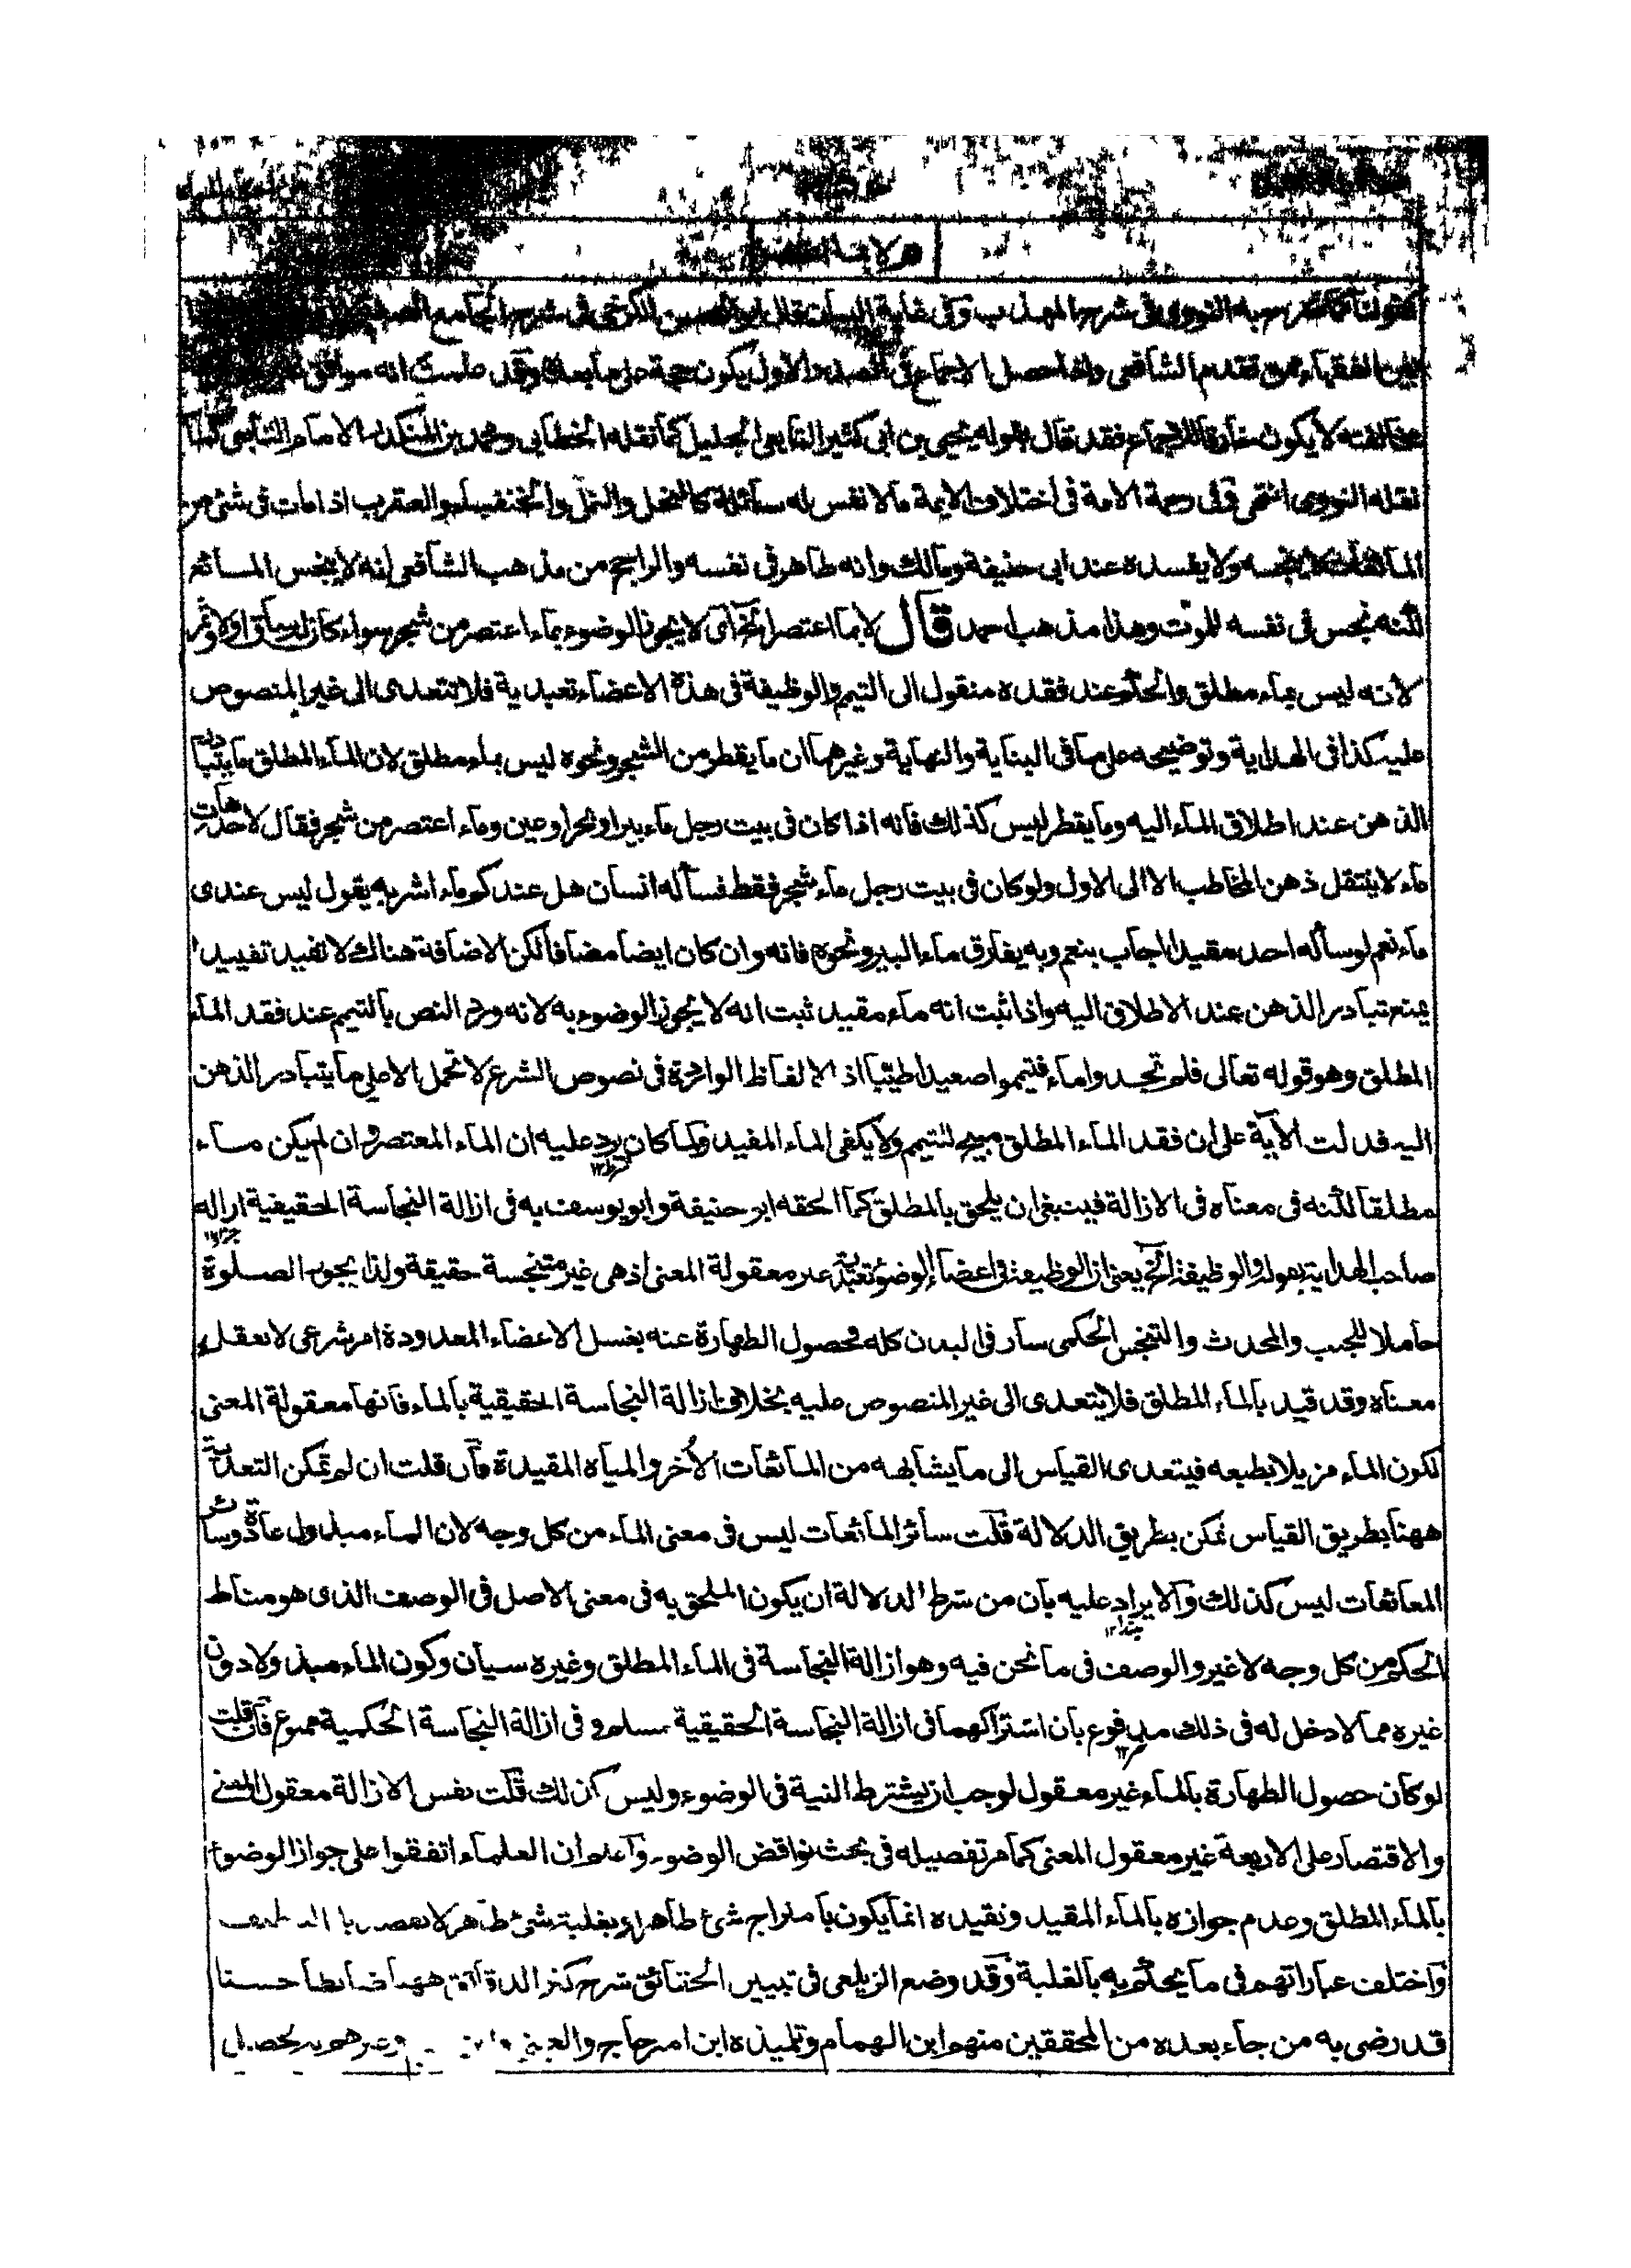 كقولنا كما صرح به النووى فى شرح المهذب وفى غاية البيان قال ابو الحسين الكرخى فى شرح الجامع الصغير
بين الفقهاء ممن تقدم الشافعى واذا حصل الاجماع فى الصدر الاول يكون حجة على ما بعده وقد علمت انه موافق
مخالفته لا يكون خارقا للاجماع فقد قال بقوله يحيى بن ابى كثير التابعى الجليل كما نقله الخطابى ومحمد بن المنكدر الامام التابعى كما
نقله النووى انتهى وفى رحمة الامة فى اختلاف الايمة ما لا نفس له سائلة كالنحل والنمل والخنفساء والعقرب اذا مات فى شئ من
المائعات لا ينجسه ولا يفسده عند ابى حنيفة ومالك وانه طاهر فى نفسه والراجح من مذهب الشافعى انه لا ينجس المائع
لكنه نجس فى نفسه بالموت وهذا مذهب احمد قال لا بما اعتصر الخ اى لا يجوز الوضوء بماء اعتصر من شجر سواء كان له ساق اولا وثمر
لانه ليس بماء مطلق والحكم عند فقده منقول الى التيمم والوظيفة فى هذه الاعضاء تعبدية فلا تتعدى الى غير المنصوص
عليه كذا فى الهداية وتوضيحه على ما فى البناية والنهاية وغيرهما ان ما يقطر من الشجر ونحوه ليس بماء مطلق لان الماء المطلق ما يتبادر
الذهن عند اطلاق الماء اليه وما يقطر ليس كذلك فانه اذا كان فى بيت رجل ماء بير او بحر او عين وماء اعتصر من شجر فقال لاحد هات
ماء لا ينتقل ذهن المخاطب الا الى الاول ولو كان فى بيت رجل ماء شجر فقط فسأله انسان هل عندكم ماء اشربه يقول ليس عندى
ماء نعم لو سأله احد مقيدا اجاب بنعم وبه يفارق ماء البير ونحوه فانه وان كان ايضا مضافا لكن الاضافة هنالك لا تفيد تقييدا
يمنع تبادر الذهن عند الاطلاق اليه واذا ثبت انه ماء مقيد ثبت انه لا يجوز الوضوء به لانه ورد النص بالتيمم عند فقد الماء
المطلق وهو قوله تعالى فلم تجدوا ماء فتيمموا صعيدا طيبا اذ الالفاظ الواردة فى نصوص الشرع لا تحمل الا على ما يتبادر الذهن
اليه فدلت الآية على ان فقد الماء المطلق مبيح للتيمم ولا يكفى الماء المقيد ولما كان يرد عليه ان الماء المعتصر وان لم يكن ماء
مطلقا لكنه فى معناه فى الازالة فينبغى ان يلحق بالمطلق كما الحقه ابو حنيفة وابو يوسف به فى ازالة النجاسة الحقيقية ازاله
صاحب الهداية بقوله والوظيفة الخ يعنى ان الوظيفة فى اعضاء الوضوء تعبدية غير معقولة المعنى اذ هى غير متنجسة حقيقة ولذا يجوز الصلوة
حاملا للجنب والمحدث والتنجس الحكمى سار فى البدن كله فحصول الطهارة عنه بغسل الاعضاء المعدودة امر شرعى لا نعقل
معناه وقد قيد بالماء المطلق فلا يتعدى الى غير المنصوص عليه بخلاف ازالة النجاسة الحقيقية بالماء فانها معقولة المعنى
لكون الماء مزيلا بطبعه فيتعدى القياس الى ما يشابهه من المائعات الأخر والمياه المقيدة فان قلت ان لم تمكن التعدية
ههنا بطريق القياس تمكن بطريق الدلالة قلت سائر المائعات ليس فى معنى الماء من كل وجه لان الماء مبذول عادة وسائر
المائعات ليس كذلك والايراد عليه بان من شرط الدلالة ان يكون الملحق به فى معنى الاصل فى الوصف الذى هو مناط
الحكم من كل وجه لا غير والوصف فى ما نحن فيه وهو ازالة النجاسة فى الماء المطلق وغيره سيان وكون الماء مبذولا دون
غيره مما لا دخل له فى ذلك مدفوع بان اشتراكهما فى ازالة النجاسة الحقيقية مسلم وفى ازالة النجاسة الحكمية ممنوع فان قلت
لو كان حصول الطهارة بالماء غير معقول لوجب ان يشترط النية فى الوضوء وليس كذلك قلت نفس الازالة معقول المعنى
والاقتصار على الاربعة غير معقول المعنى كما مر تفصيله فى بحث نواقض الوضوء واعلم ان العلماء اتفقوا على جواز الوضوء
بالماء المطلق وعدم جوازه بالماء المقيد وتقيده انما يكون بامتزاج شئ طاهر او بغلبة شئ طاهر لا يقصد به التنظيف
واختلف عباراتهم فى ما يحكم به بالغلبة وقد وضع الزيلعى فى تبيين الحقائق شرح كنز الدقائق ههنا ضابطا حسنا
قد رضى به من جاء بعده من المحققين منهم ابن الهمام وتلميذه ابن امير حاج والعينى وغيرهم